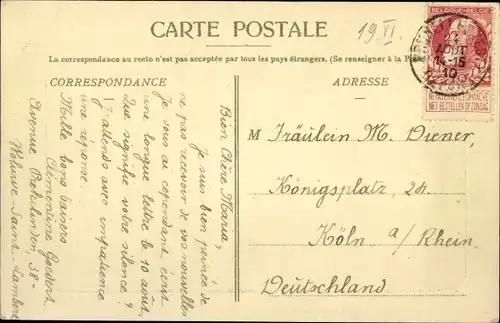 CARTE POSTALE
19.VI.
La correspondance au recto n'est pas acceptée par tous les pays étrangers. (Se renseigner à la
CORRESPONDANCE
ADRESSE
BELGIQUE-BELGIË
AOUT
14-15
10
NE PAS LIVRER LE DIMANCHE
NIET BESTELLEN OP ZONDAG
Bien Chère Maria,
Je suis bien peinée de
ne pas recevoir de vos nouvelles
Je vous ai cependant écrit
une longue lettre le 10 août.
Que signifie votre silence?
J'attends avec impatience
une réponse.
Mille bons baisers
Clémentine
Avenue 38-
Woluwe Saint-Lambert
M Fräulein M. Diener,
Königsplatz, 24
Köln a/Rhein.
Deutschland.